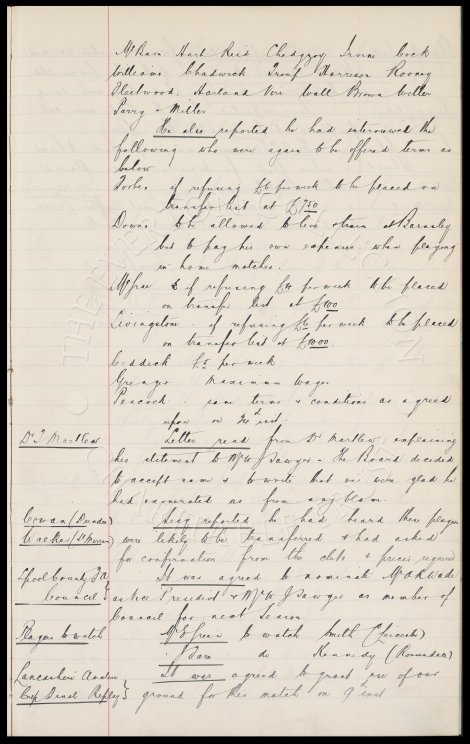 McBain Hart Reid Chedgzoy Irvine Cock
Williams Chadwick Troup Harrison Rooney
Fleetwood. Harland Virr Wall Brown Weller
Parry & Miller
He also reported he had interviewed the
following who were again to be offered terms as
below
Forbes if refusing £6 per week to be placed on
transfer list at £750
Downs to be allowed to live & train at Barnsley
but to pay his own expenses when playing
in home matches.
if refusing £4 per week to be placed
on transfer list at £100
Livingstone if refusing £6 per week to be placed
on transfer list at £1000.
Reddick £5 per week
Grenyer Maximum Wages
Peacock same terms & conditions as agreed
upon on inst.
Dr J Martlew Letter read from Dr Martlew explaining
his statement to Mr W J Sawyer - The Board decided
to accept same & to write that we were glad he
had exonerated us from any blame.
Cowan (Dundee) Secy reported he had heard these players
(St Mirren) were likely to be transferred & had asked
for confirmation from the clubs & prices required
Lpool County F.A. It was agreed to nominate Mr A R Wade
Council as Vice President & Mr W J Sawyer as member of
Council for next Season
Players to watch Mr E Green to watch Smith (Leicester)
do Kennedy (Rossendale)
Lancashire Amateur It was agreed to grant use of our
Cup Final Replay ground for this match on 9th inst